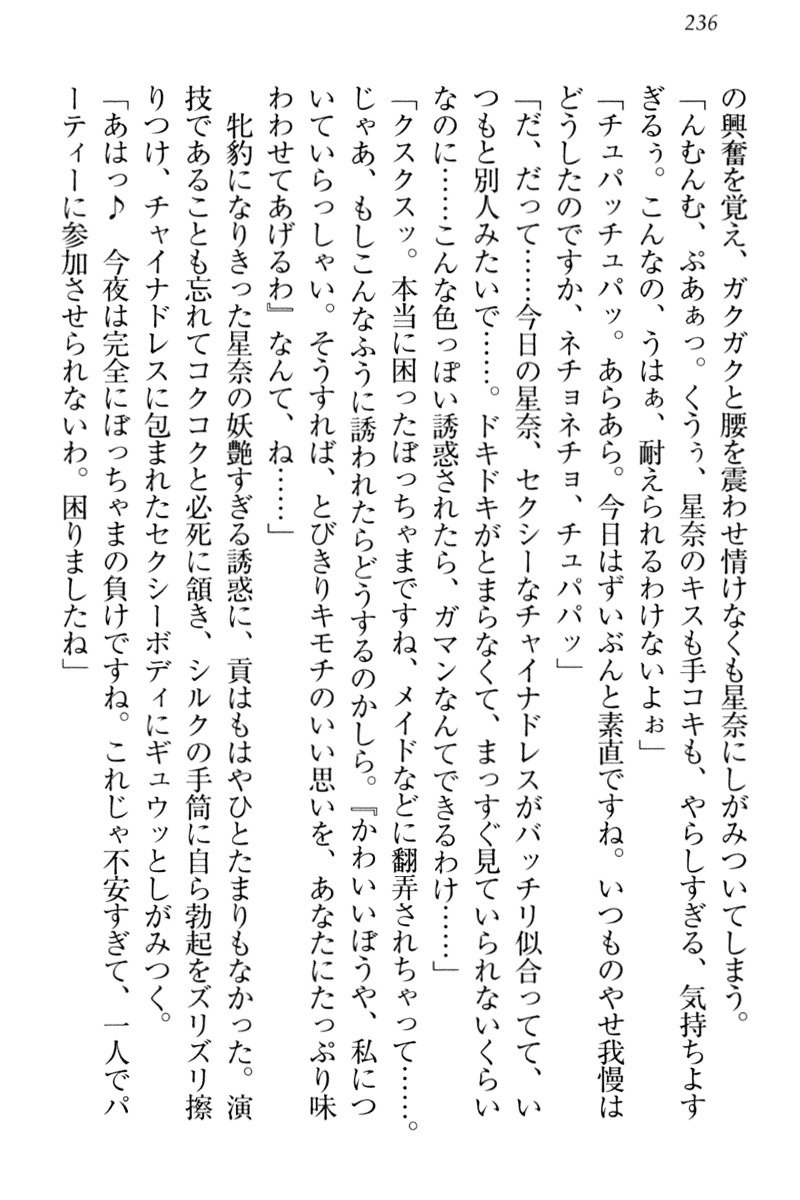 236
の興奮を覚え、ガクガクと腰を震わせ情けなくも星奈にしがみついてしまう。
「んむんむ、ぷあぁっ。くうぅ、星奈のキスも手コキも、やらしすぎる、気持ちよす
ぎるぅ。こんなの、うはぁ、耐えられるわけないよぉ」
「チュパッチュパッ。あらあら。今日はずいぶんと素直ですね。いつものやせ我慢は
どうしたのですか、ネチョネチョ、チュパパッ」
「だ、だって……今日の星奈、セクシーなチャイナドレスがバッチリ似合ってて、い
つもと別人みたいで……。ドキドキがとまらなくて、まっすぐ見ていられないくらい
なのに……こんな色っぽい誘惑されたら、ガマンなんてできるわけ……」
「クスクスッ。本当に困ったぼっちゃまですね、メイドなどに翻弄されちゃって……。
じゃあ、もしこんなふうに誘われたらどうするのかしら。『かわいいぼうや、私につ
いていらっしゃい。そうすれば、とびきりキモチのいい思いを、あなたにたっぷり味
わわせてあげるわ』なんて、ね……」
　牝豹になりきった星奈の妖艶すぎる誘惑に、貢はもはやひとたまりもなかった。演
技であることも忘れてコクコクと必死に頷き、シルクの手筒に自ら勃起をズリズリ擦
りつけ、チャイナドレスに包まれたセクシーボディにギュウッとしがみつく。
「あはっ♪　今夜は完全にぼっちゃまの負けですね。これじゃ不安すぎて、一人でパ
ーティーに参加させられないわ。困りましたね」